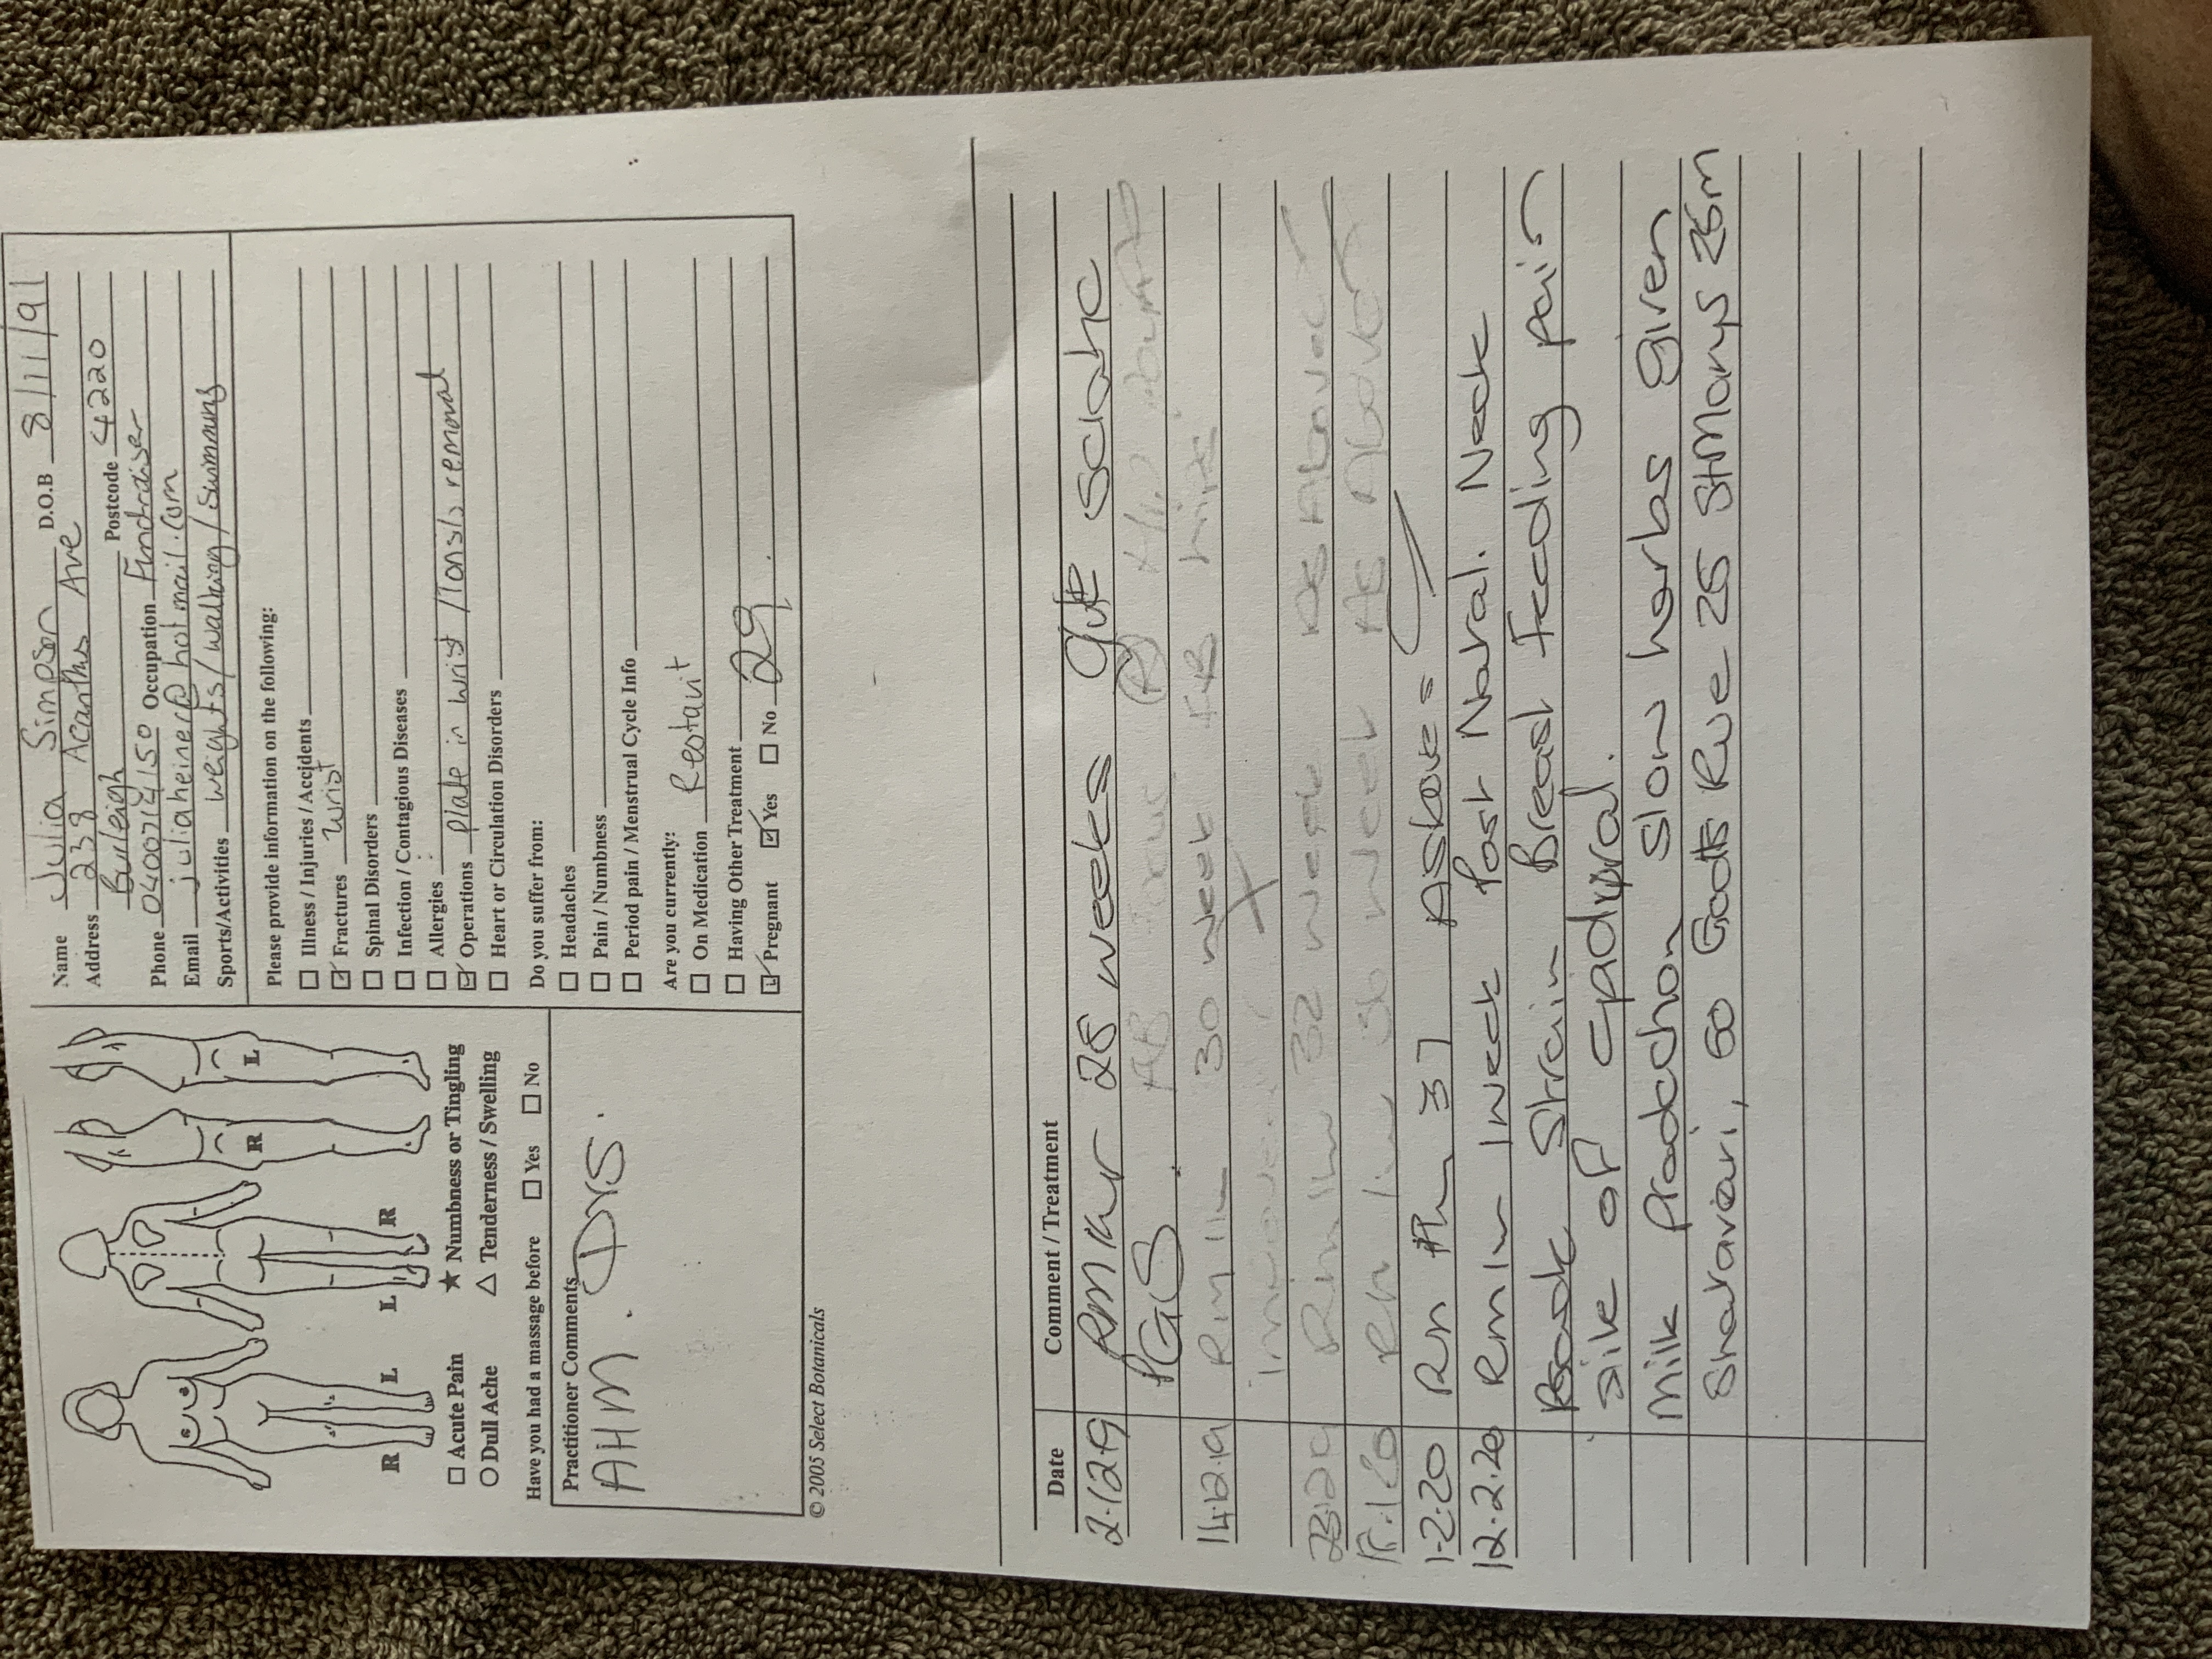 Name Julia Simpson D.O.B 8/11/91
Address 239 Acanthus Ave
Burleigh Postcode 4220
Phone 0400714150 Occupation Fundraiser
Email juliaheiner@hotmail.com
Sports/Activities weights/walking/swimming
Please provide information on the following:
☐ Illness / Injuries / Accidents
☑ Fractures wrist
☐ Spinal Disorders
☐ Infection / Contagious Diseases
☐ Allergies
☑ Operations plate in wrist / Tonsils removal
☐ Heart or Circulation Disorders
Do you suffer from:
☐ Headaches
☐ Pain / Numbness
☐ Period pain / Menstrual Cycle Info
Are you currently:
☐ On Medication
☐ Having Other Treatment
☑ Pregnant ☑ Yes ☐ No 29
R L L R R L
☐ Acute Pain ★ Numbness or Tingling
○ Dull Ache △ Tenderness / Swelling
Have you had a massage before ☐ Yes ☐ No
Practitioner Comments
AHM. Drs.
© 2005 Select Botanicals
Date Comment / Treatment
2.12.19 RM 1hr 28 weeks glut sciatic
14.12.19 Rm 1hr 30 week
Rm 1hr 32 week as Above
Rm 1hr 36 week As Above
1.2.20 Rm 1hr 37 AsAbove
12.2.20 Rm 1hr 1week Post Natal. Neck
Strain Breast Feeding pain
site of epidural.
Milk Prodction slow herbs given
Shatavari, 50 Goats Rue 25 StMarys 25m